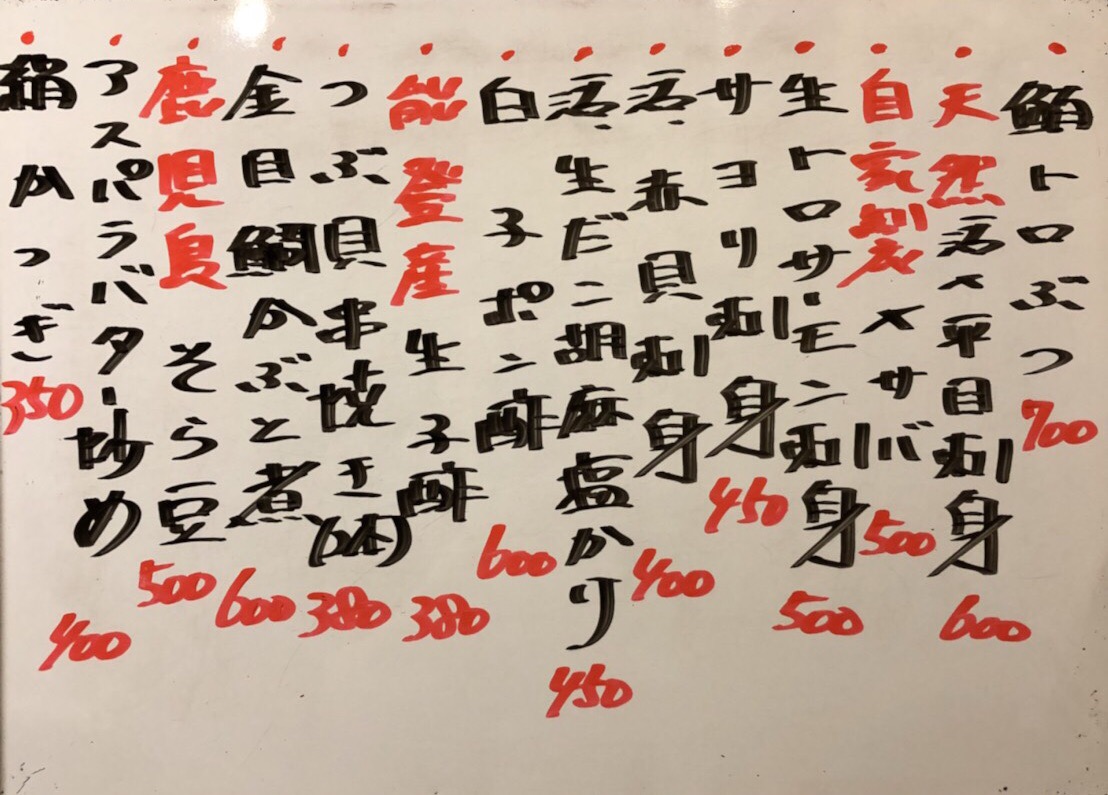 鮪トロぶつ 700
天然活〆平目刺身 600
自家製〆サバ 500
生トロサーモン刺身 500
サヨリ刺身 450
活、赤貝刺身 400
活、生だこ胡麻塩かり 450
白子ポン酢 600
能登産生子酢 380
つぶ貝串焼き(2本) 380
金目鯛かぶと煮 600
鹿児島そら豆 500
アスパラバター炒め 400
絹かつぎ 350